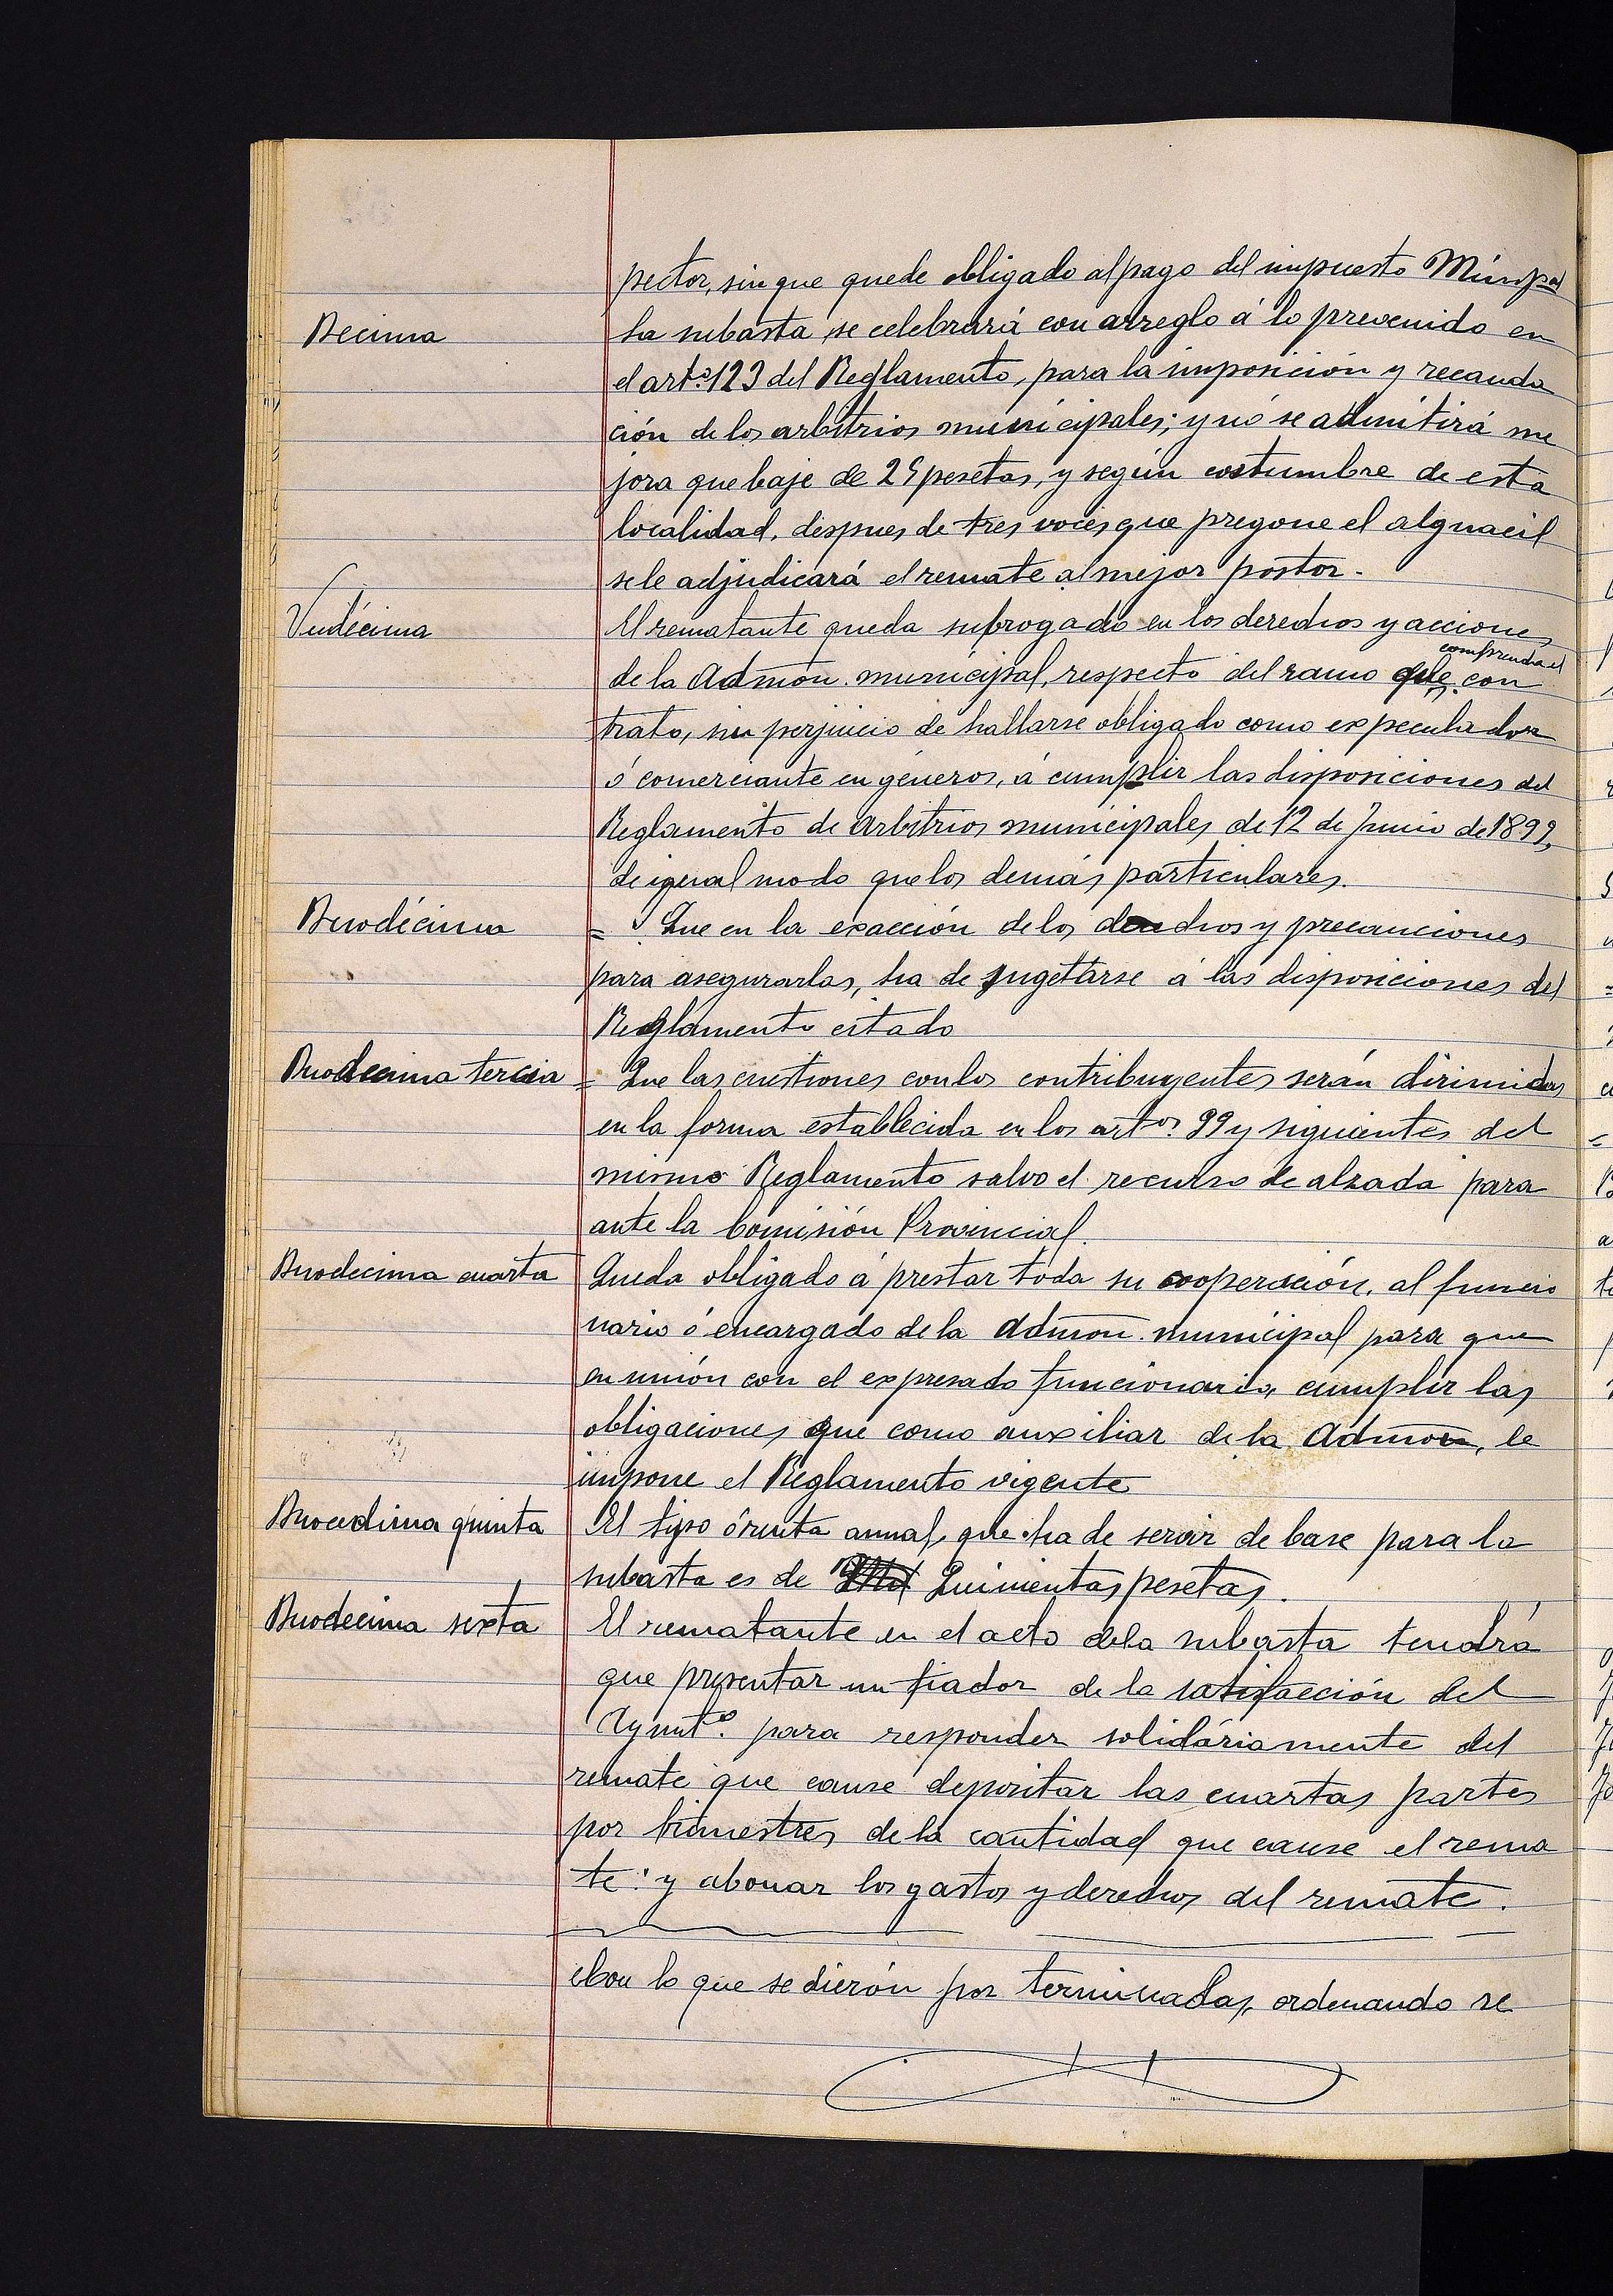 pector, sin que quede obligado al pago del impuesto Múnpal
Decima
La subasta se celebrará con arreglo á lo prevenido en
el artº 123 del Reglamento, para la imposición y recauda
ción de los arbitrios municipales; y nó se admitirá me
jora que baje de 25 pesetas, y según costumbre de esta
localidad, despues de tres voces que pregone el alguacil
se le adjudicará el remate al mejor postor.
Undécima
El rematante queda subrogado en los derechos y acciones
de la Admón. municipal, respecto del ramo que comprenda el con
trato, sin perjuicio de hallarse obligado como expeculador
ó comerciante en géneros, á cumplir las disposiciones del
Reglamento de Arbitrios municipales de 12 de Junio de 1899,
de igual modo que los demás particulares.
Duodécima
= Que en la exacción de los derechos y precauciones
para asegurarlas, ha de sugettarse á las disposiciones del
Reglamento citado
Duodecima tercia
= Que las cuestiones con los contribuyentes serán dirimidas
en la forma establecida en los artos. 99 y siguientes del
mismo Reglamento salvo el recurso de alzada para
ante la Comisión Provincial.
Duodecima cuarta
Queda obligado á prestar toda su cooperación, al funcio
nario ó encargado de la Admón. municipal para que
en unión con el expresado funcionario, cumplir las
obligaciones que como auxiliar de la Admon, le
impone el Reglamento vigente
Duocedima quinta
El tipo ó renta anual, que ha de servir de base para la
subasta es de Quinientas pesetas.
Duodecima sexta
El rematante en el acto dela subasta tendrá
que presentar un fiador de la satisfacción del
Ayuntº. para responder solidáriamente del
remate que cause depositar las cuartas partes
por bimestres de la cantidad que cause el rema
te: y abonar los gastos y derechos del remate.
Con lo que se dierón por terminadas, ordenando se